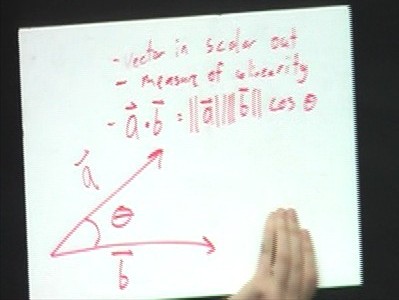 - vector in scalar out
- measure of colinearity
- a⃗ • b⃗ = ||a⃗|| ||b⃗|| cos θ
a⃗
θ
b⃗